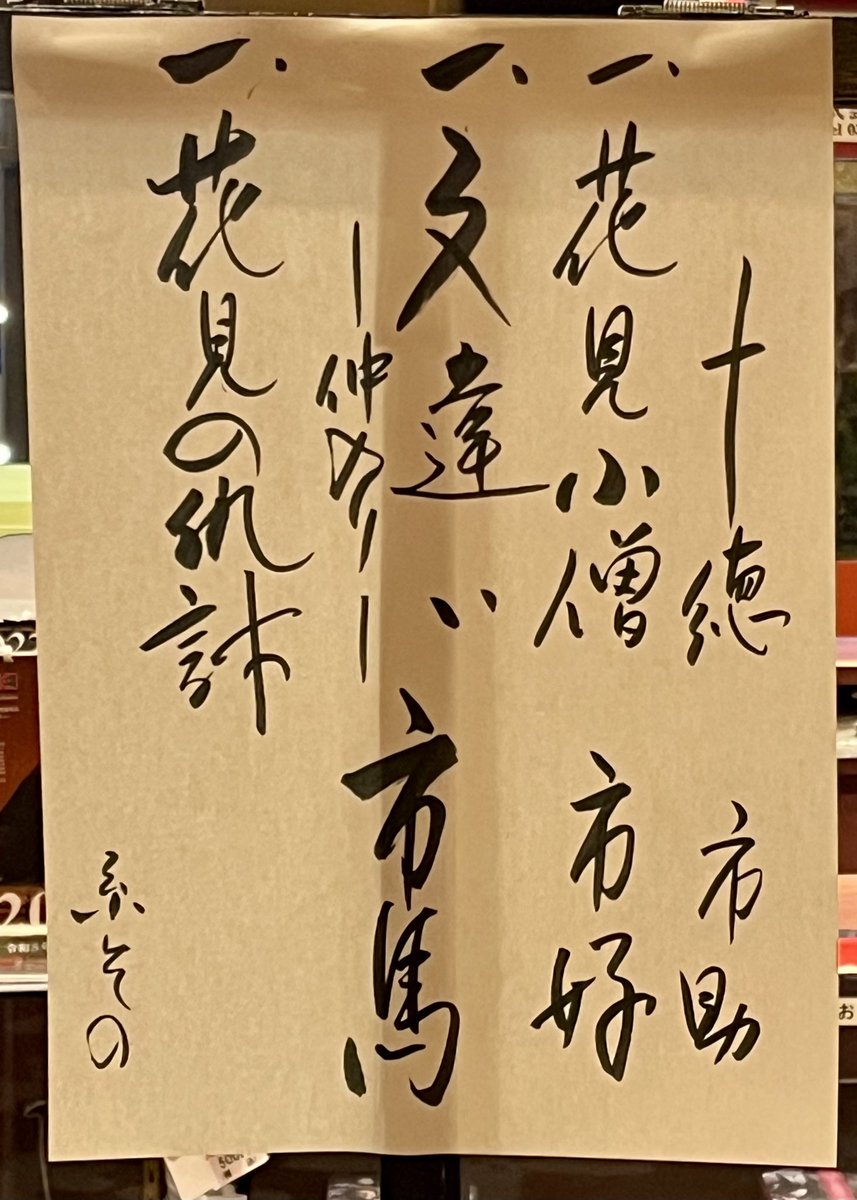 十徳 市助
一、花見小僧 市好
一、文違い 市馬
―仲入り―
一、花見の仇討
糸その